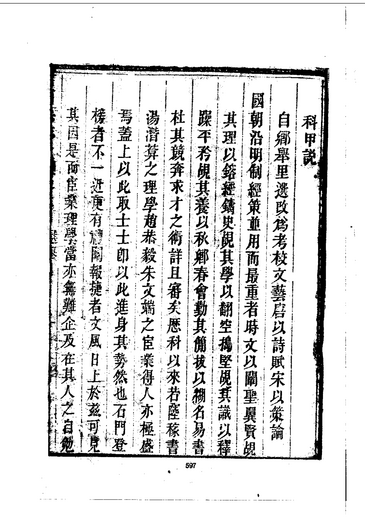 科甲說
自鄉舉里選改為考校文藝唐以詩賦宋以策論
國朝沿明制經策並用而最重者時文以闡聖翼賢覘
其理以鎔經鑄史覘其學以翻空搗堅覘其識以釋
躁平矜覘其養以秋鄉春會勤其簡拔以糊名易書
杜其競奔求才之術詳且審矣歷科以來若陸稼書
湯潛菴之理學趙恭毅朱文端之宦業得人亦極盛
焉蓋上以此取士士卽以此進身其勢然也石門登
榜者不一近更有 閣報捷者文風日上於茲可見
其因是而宦業理學當亦無難企及在其人之自勉
597